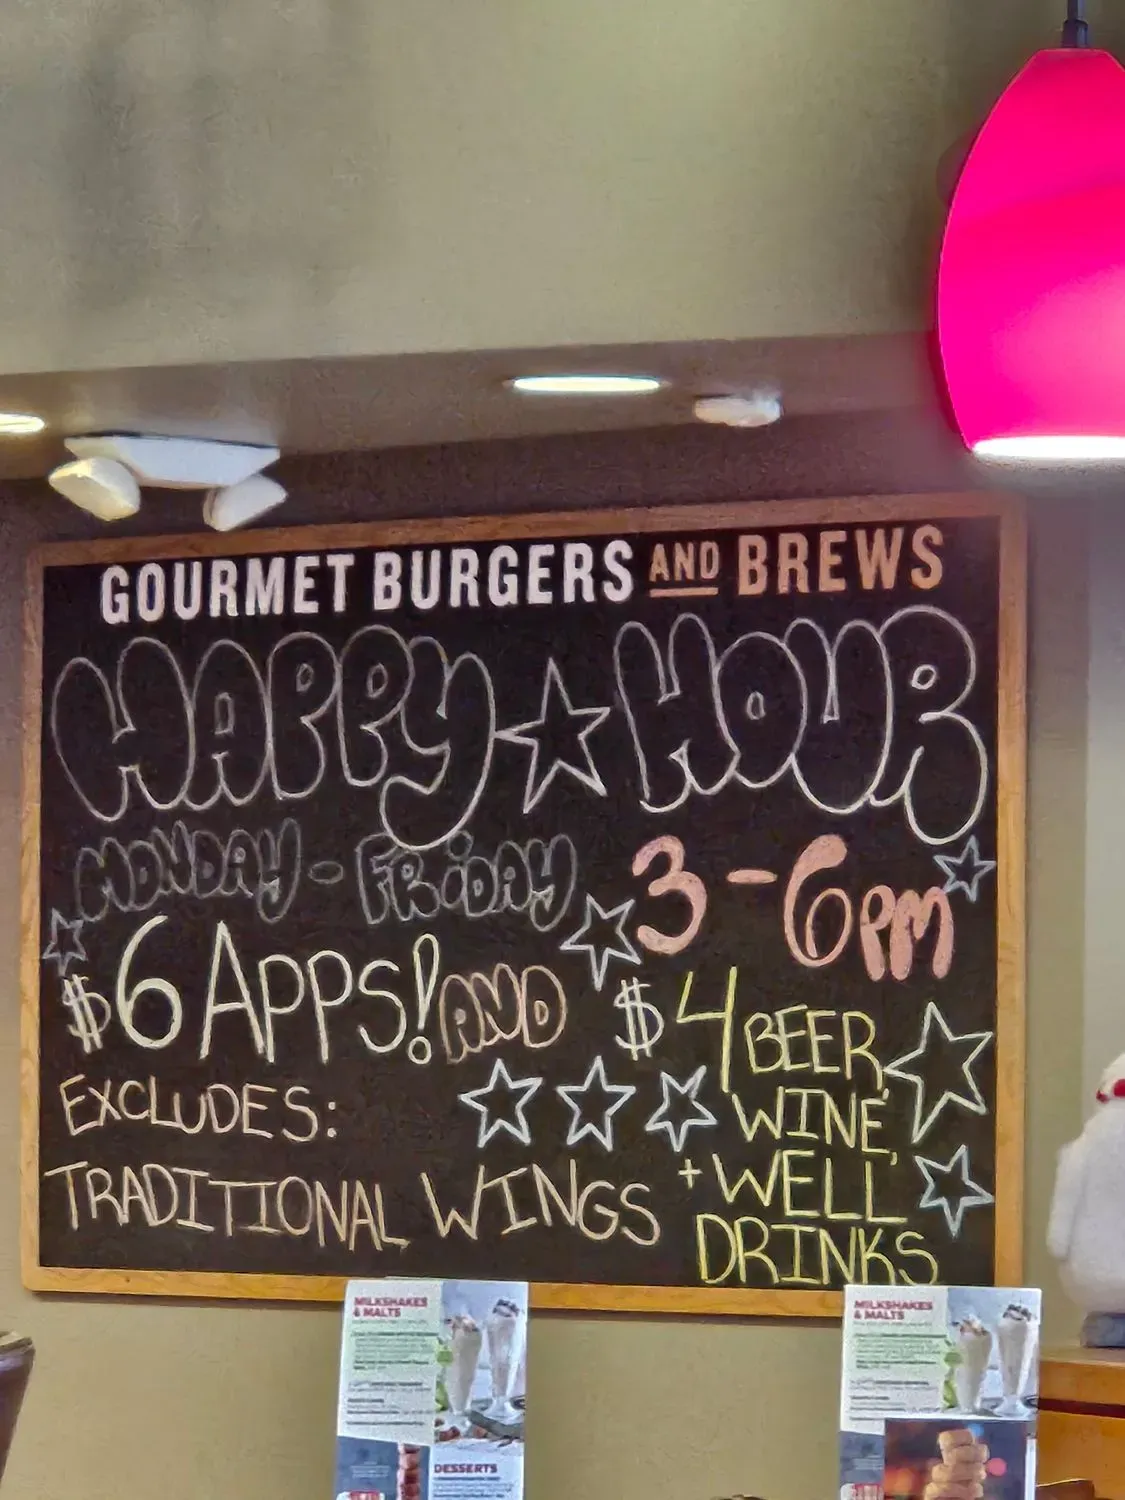 GOURMET BURGERS AND BREWS
HAPPY HOUR
MONDAY - FRiDAY 3-6PM
$6 APPS! AND
$4 BEER,
WINE,
+ WELL
DRINKS
EXCLUDES:
TRADITIONAL WINGS
MILKSHAKES
& MALTS
DESSERTS
MILKSHAKES
& MALTS